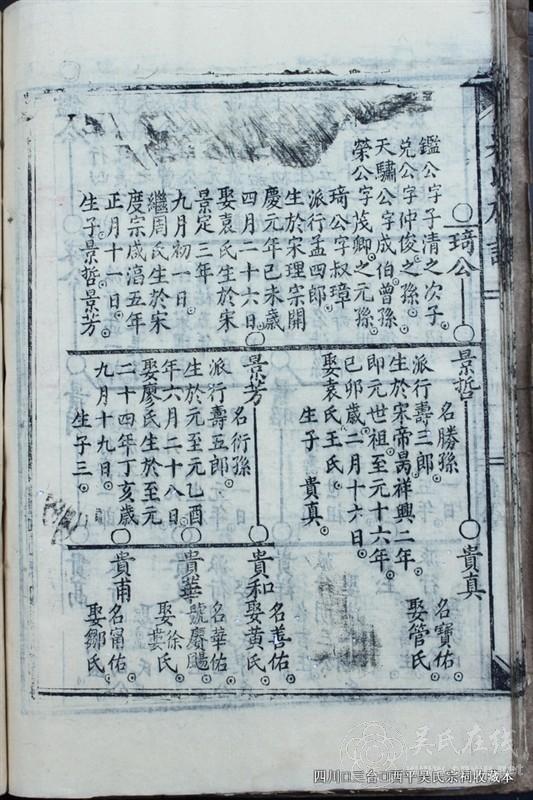 琦公
鑑公字子清之次子
兌公字仲俊之孫
天驌公字成伯曾孫
榮公字茂卿之元孫
琦公字叔璋
派行孟四郎
生於宋理宗開
慶元年己未歲
四月二十六日
娶袁氏生於宋
景定三年
九月初一日
繼周氏生於宋
度宗咸淳五年
正月十一日
生子景哲景芳
景哲
名勝孫
派行壽三郎
生於宋帝昺祥興二年
即元世祖至元十六年
己卯歲二月十六日
娶袁氏王氏
生子 貴真
景芳
名衍孫
派行壽五郎
生於元至元乙酉
年六月二十八日
娶廖氏生於至元
二十四年丁亥歲
九月十九日
生子三
貴真
名寶佑
娶管氏
貴和
名善佑
娶黃氏
貴華
名華佑
號賡颺
徐氏
娶婁氏
貴甫
名甯佑
娶鄒氏
吳氏在线
四川□三台□西平吴氏宗祠收藏本